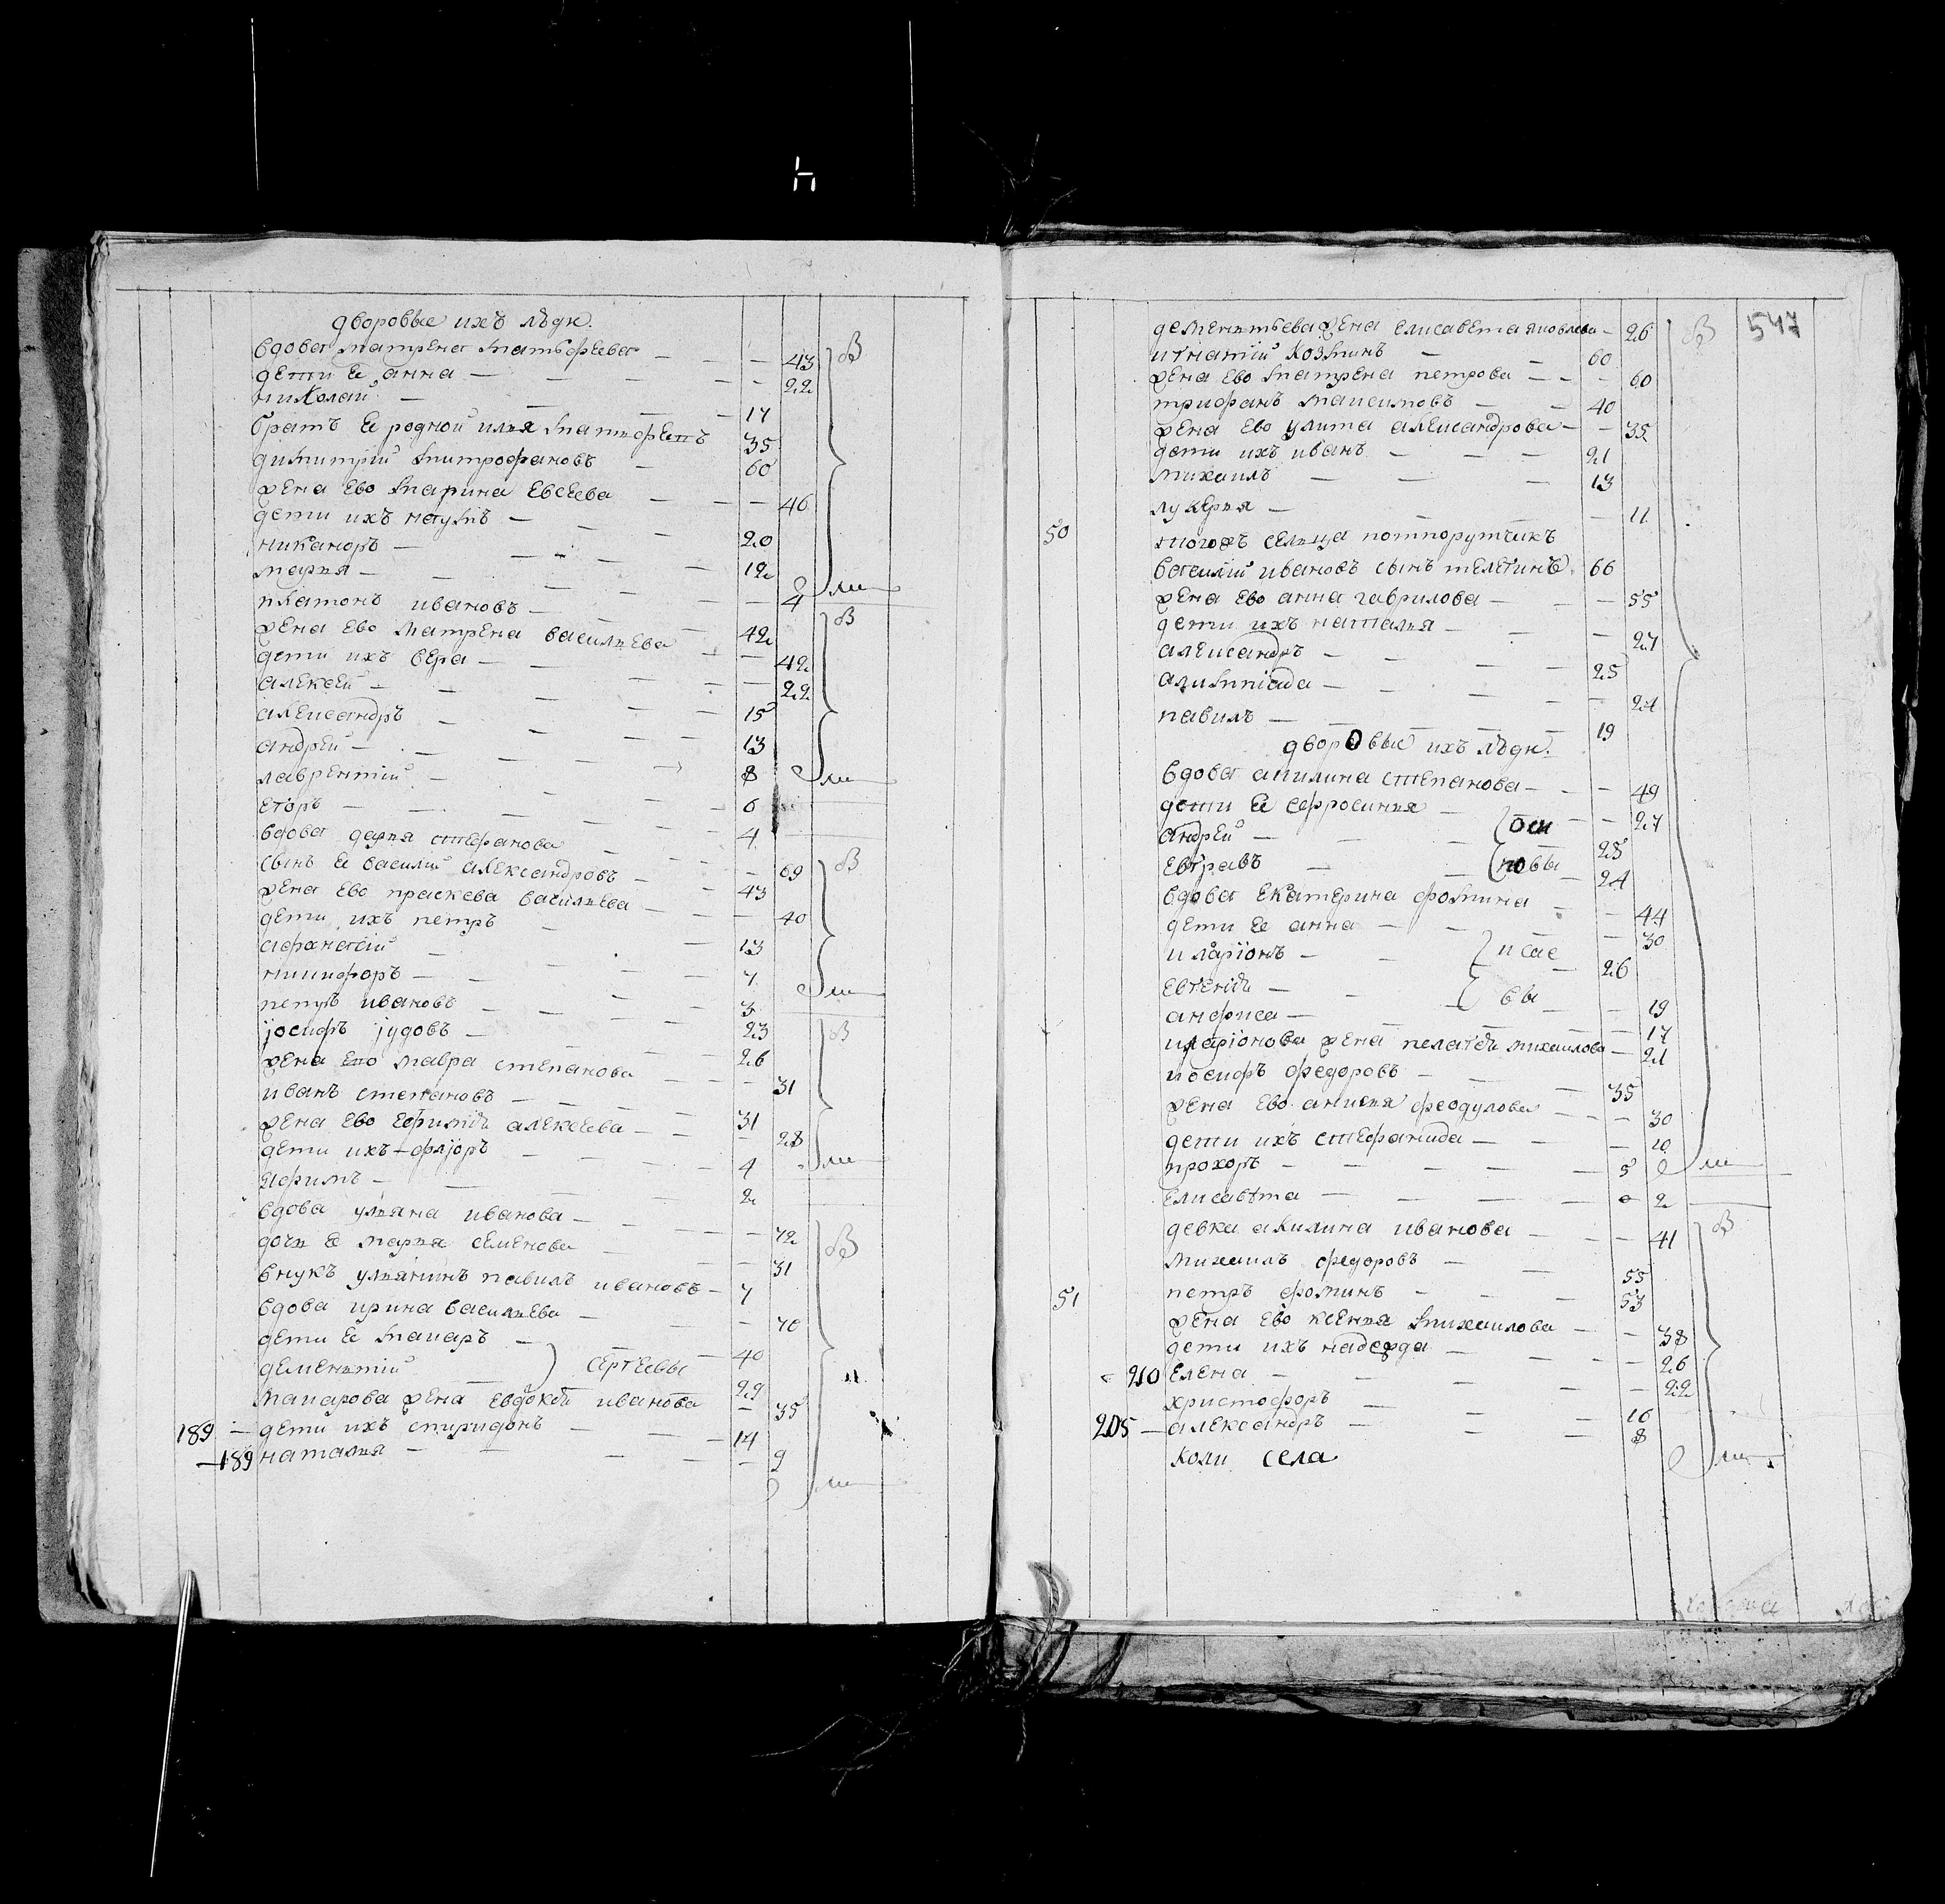 дворовые ихъ люди.
вдова матрена матьфеева — — — 43 В
дети ее анна — — — 22
николай — — — 17
братъ ее родной илья матьфеевъ 35
димитрий митрофановъ — 60
жена ево марина евсеева — — — 46
дети ихъ наумъ — — — 20
никаноръ — — — 12
марья — — — 4
платонъ ивановъ — — 42 В
жена ево матрена васильева — — 42
дети ихъ вера — — — 22
алексей — — — 15
александръ — — — 13
андрей — — — 8
лаврентий — — — 6
егоръ — — — 4
вдова дарья стефанова — — 69 В
сынъ ее василий александровъ — 43
жена ево праскева васильева — — 40
дети ихъ петръ — — 13
афанасий — — 7
никифоръ — — — 3
петръ ивановъ — — — 23
јосифъ јудовъ — — — 26 В
жена ево мавра степанова — — — 31
иванъ степановъ — — — 31
жена ево ефимия алексеева — — — 28
дети ихъ флоръ — — — 4
ефимъ — — — 2
вдова ульяна иванова — — — 72
дочь ее марья семенова — — 31 В
внукъ ульянинъ павилъ ивановъ — 7
вдова ирина васильева — — — 70
дети ее макаръ — — 40
дементий сергеевы 29
макарова жена евдокия иванова — 35
189 — дети ихъ спиридонъ — — 14
—189 наталья — — — 9
547
дементьева жена елисавета яковлева — 26 В
игнатий козминъ — 60
жена ево матрена петрова — — — 60
трифанъ максимовъ — — 40
жена ево улита александрова — — 35
дети ихъ иванъ — — — 21
михаилъ — — — 13
лукерья — — — 11
50 тогожъ сельца потпорутчикъ
василий ивановъ сынъ телегинъ. 66
жена ево анна гаврилова — — — 55
дети ихъ наталья — — — 27
александръ — — — 25
алимпиада — — — 24
павилъ — — — 19
дворовые ихъ люди.
вдова акилина степанова — — — 49
дети ее ефросинья — — — 27
андрей — — оси 28
евграфъ — — повы 24
вдова екатерина фомина — — 44
дети ее анна — — — 30
иларіонъ — — исае 26
евгения — — вы — 19
анфиса — — — 17
иларіонова жена пелагия михаилова — 21
иосифъ федоровъ — — — 35
жена ево анисья феодулова — — — 30
дети ихъ стефанида — — — 10
прохоръ — — — 5
елисавета — — — 2
девка акилина иванова — — — 41 В
михаилъ федоровъ — — 55
51 петръ фоминъ — — — 53
жена ево ксенья михаилова — — 38
дети ихъ надежда — — — 26
210 елена — — — 22
христофоръ — — — 10
205 — александръ — — — 8
коли села